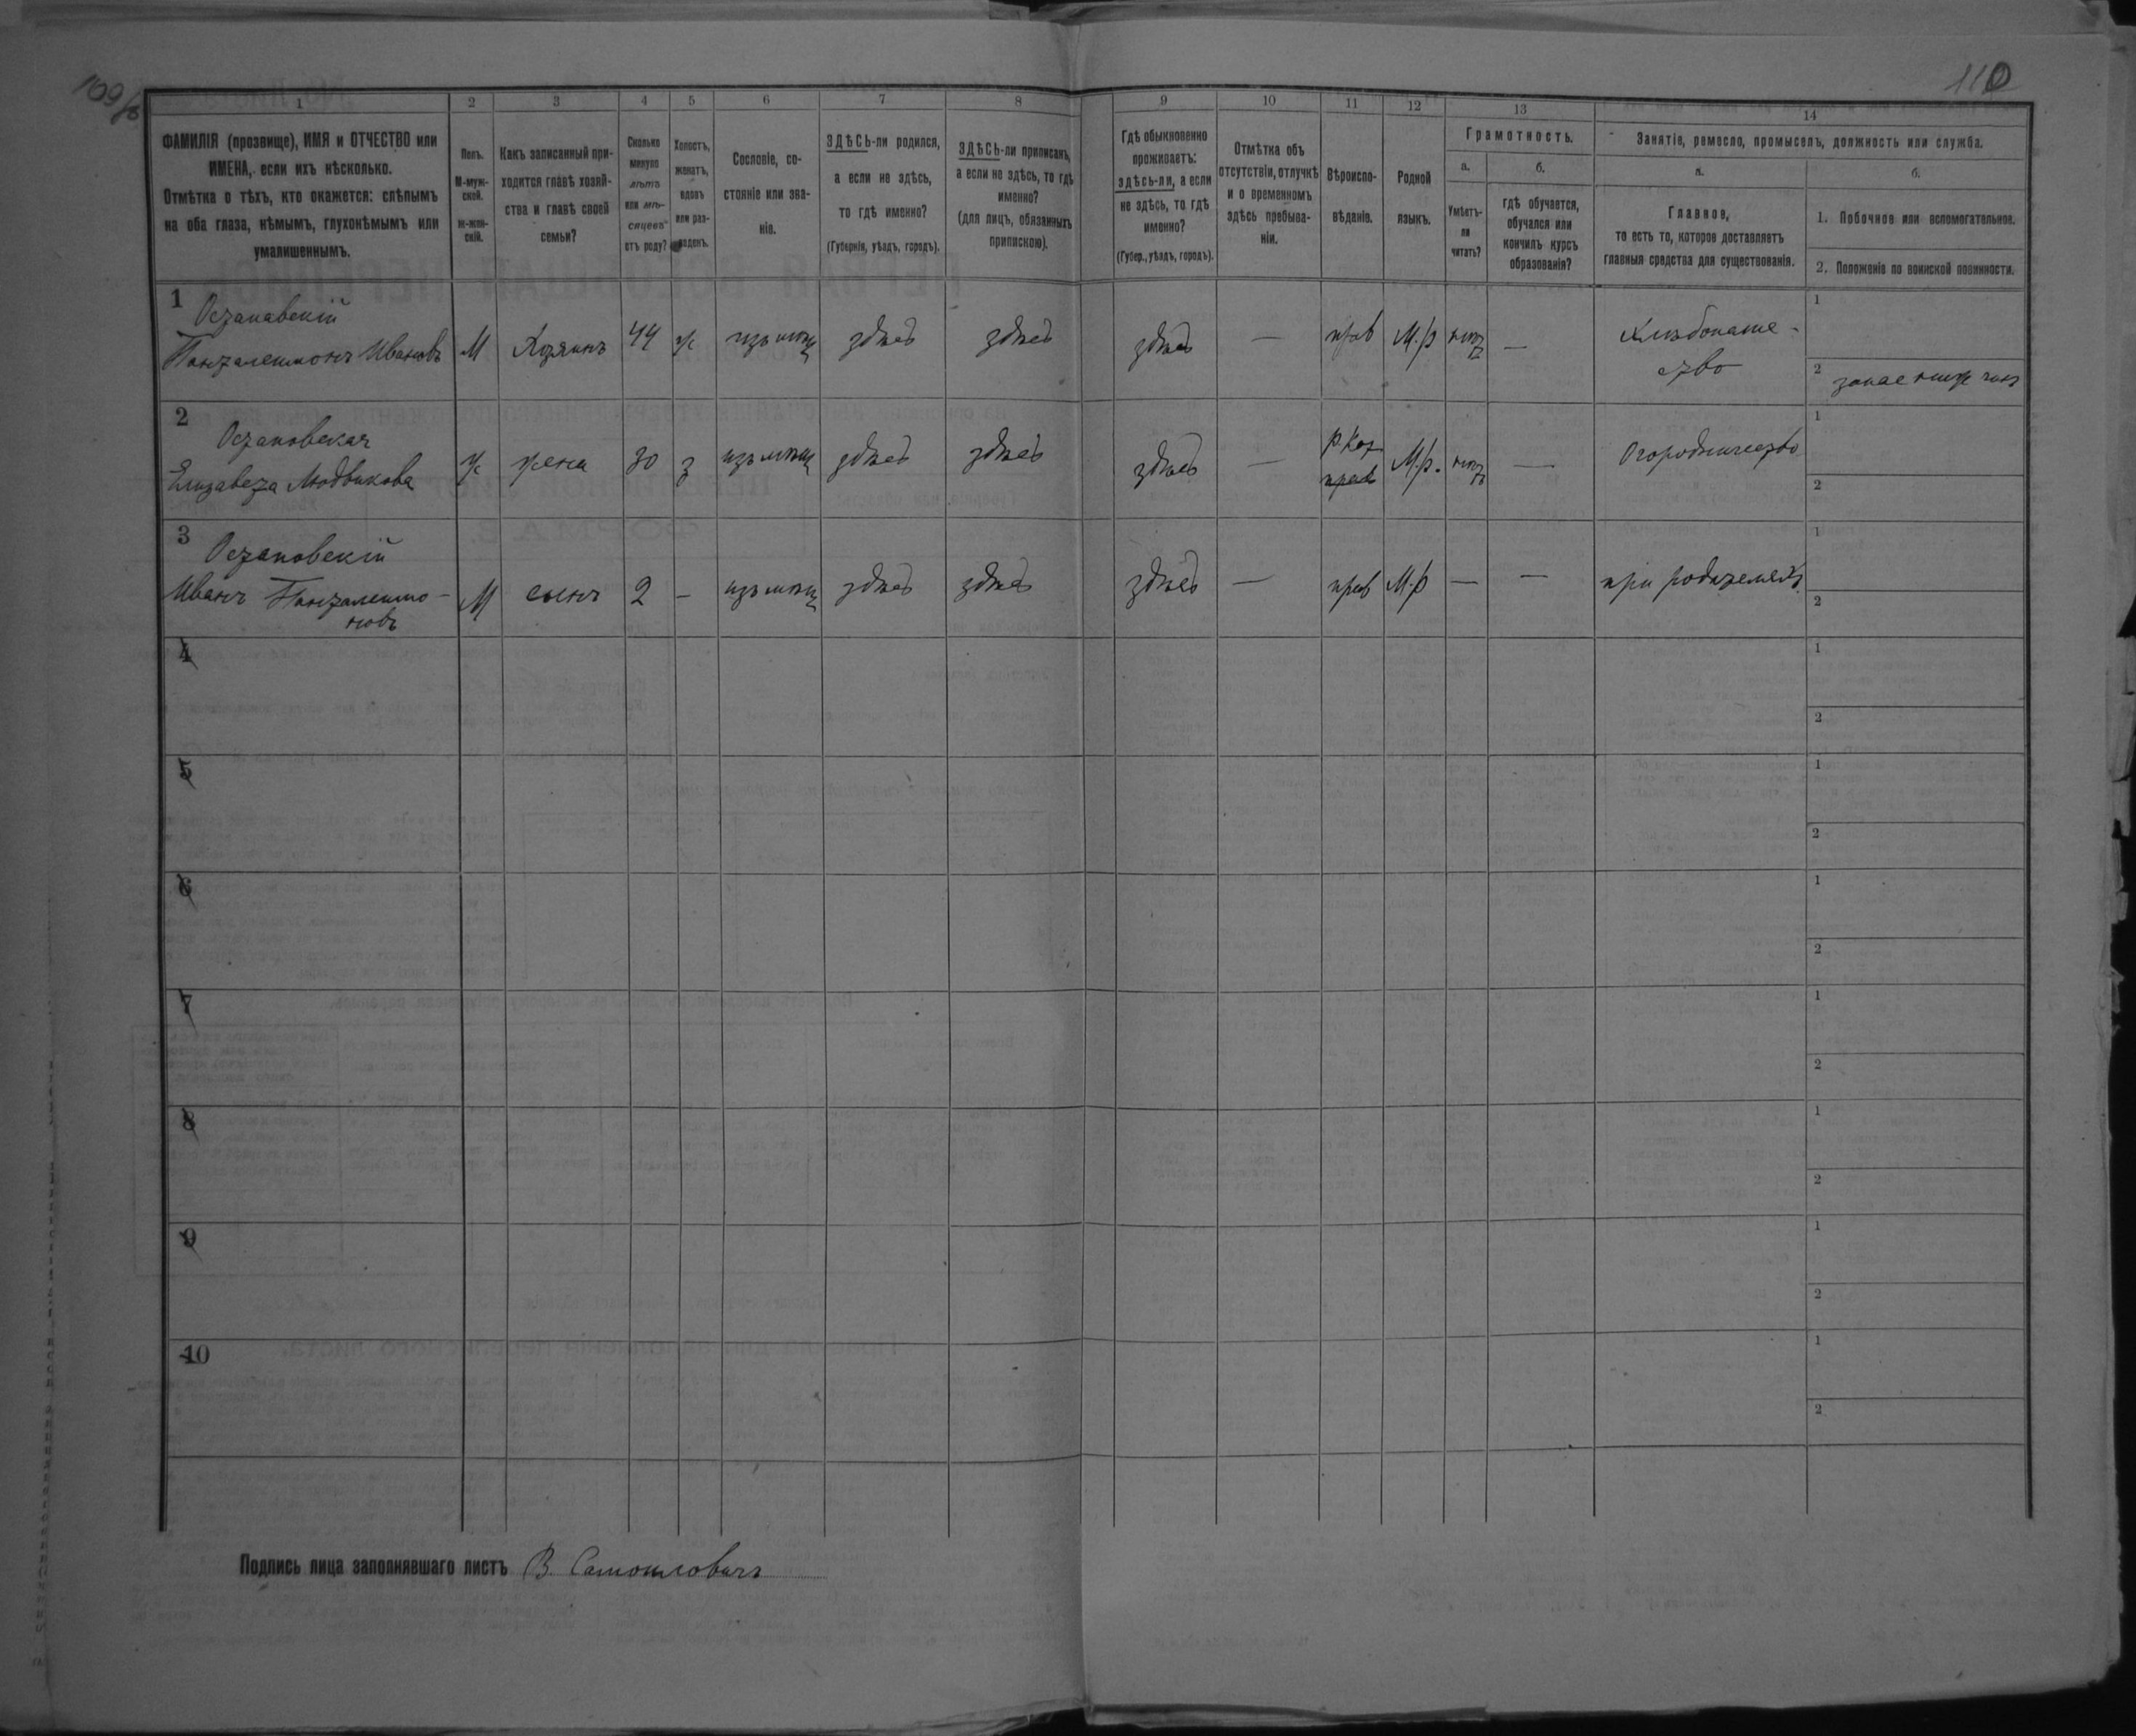 109/об
110
1
2
3
4
5
6
7
8
9
10
11
12
13
14
ФАМИЛІЯ (прозвище), ИМЯ и ОТЧЕСТВО или
ИМЕНА, если ихъ нѣсколько.
Отмѣтка о тѣхъ, кто окажется: слѣпымъ
на оба глаза, нѣмымъ, глухонѣмымъ или
умалишеннымъ.
Полъ.
М-муж-
ской.
ж-жен-
скій.
Какъ записанный при-
ходится главѣ хозяй-
ства и главѣ своей
семьи?
Сколько
минуло
лѣтъ
или мѣ-
сяцевъ
отъ роду?
Холостъ,
женатъ,
вдовъ
или раз-
веденъ.
Сословіе, со-
стояніе или зва-
ніе.
ЗДѢСЬ-ли родился,
а если не здѣсь,
то гдѣ именно?
(Губернія, уѣздъ, городъ).
ЗДѢСЬ-ли приписанъ,
а если не здѣсь, то гдѣ
именно?
(для лицъ, обязанныхъ
припискою).
Гдѣ обыкновенно
проживаетъ:
здѣсь-ли, а если
не здѣсь, то гдѣ
именно?
(Губер., уѣздъ, городъ).
Отмѣтка объ
отсутствіи, отлучкѣ
и о временномъ
здѣсь пребыва-
ніи.
Вѣроиспо-
вѣданіе.
Родной
языкъ.
Грамотность.
а.
Умѣетъ-
ли
читать?
б.
гдѣ обучается,
обучался или
кончилъ курсъ
образованія?
Занятіе, ремесло, промыселъ, должность или служба.
а.
Главное,
то есть то, которое доставляетъ
главныя средства для существованія.
б.
1. Побочное или вспомогательное.
2. Положеніе по воинской повинности.
1
Остановскій
Пантелеимонъ Ивановъ
М
Хозяинъ
44
ж
изъ мѣщ
здѣсь
здѣсь
здѣсь
—
прав
М.р
нѣтъ
—
Хлѣбопаше-
ство
1
2 запас нижн чинъ
2
Остановская
Елизавета Людвикова
ж
жена
30
з
изъ мѣщ
здѣсь
здѣсь
здѣсь
—
р. Кат
прав
М.р.
нѣтъ
—
Огородничество
1
2
3
Остановскій
Иванъ Пантелеимо-
новъ
М
сынъ
2
—
изъ мѣщ
здѣсь
здѣсь
здѣсь
—
прав
М.р
—
—
при родителяхъ
1
2
4
1
2
5
1
2
6
1
2
7
1
2
8
1
2
9
1
2
10
1
2
Подпись лица заполнявшаго листъ В. Самойловичъ